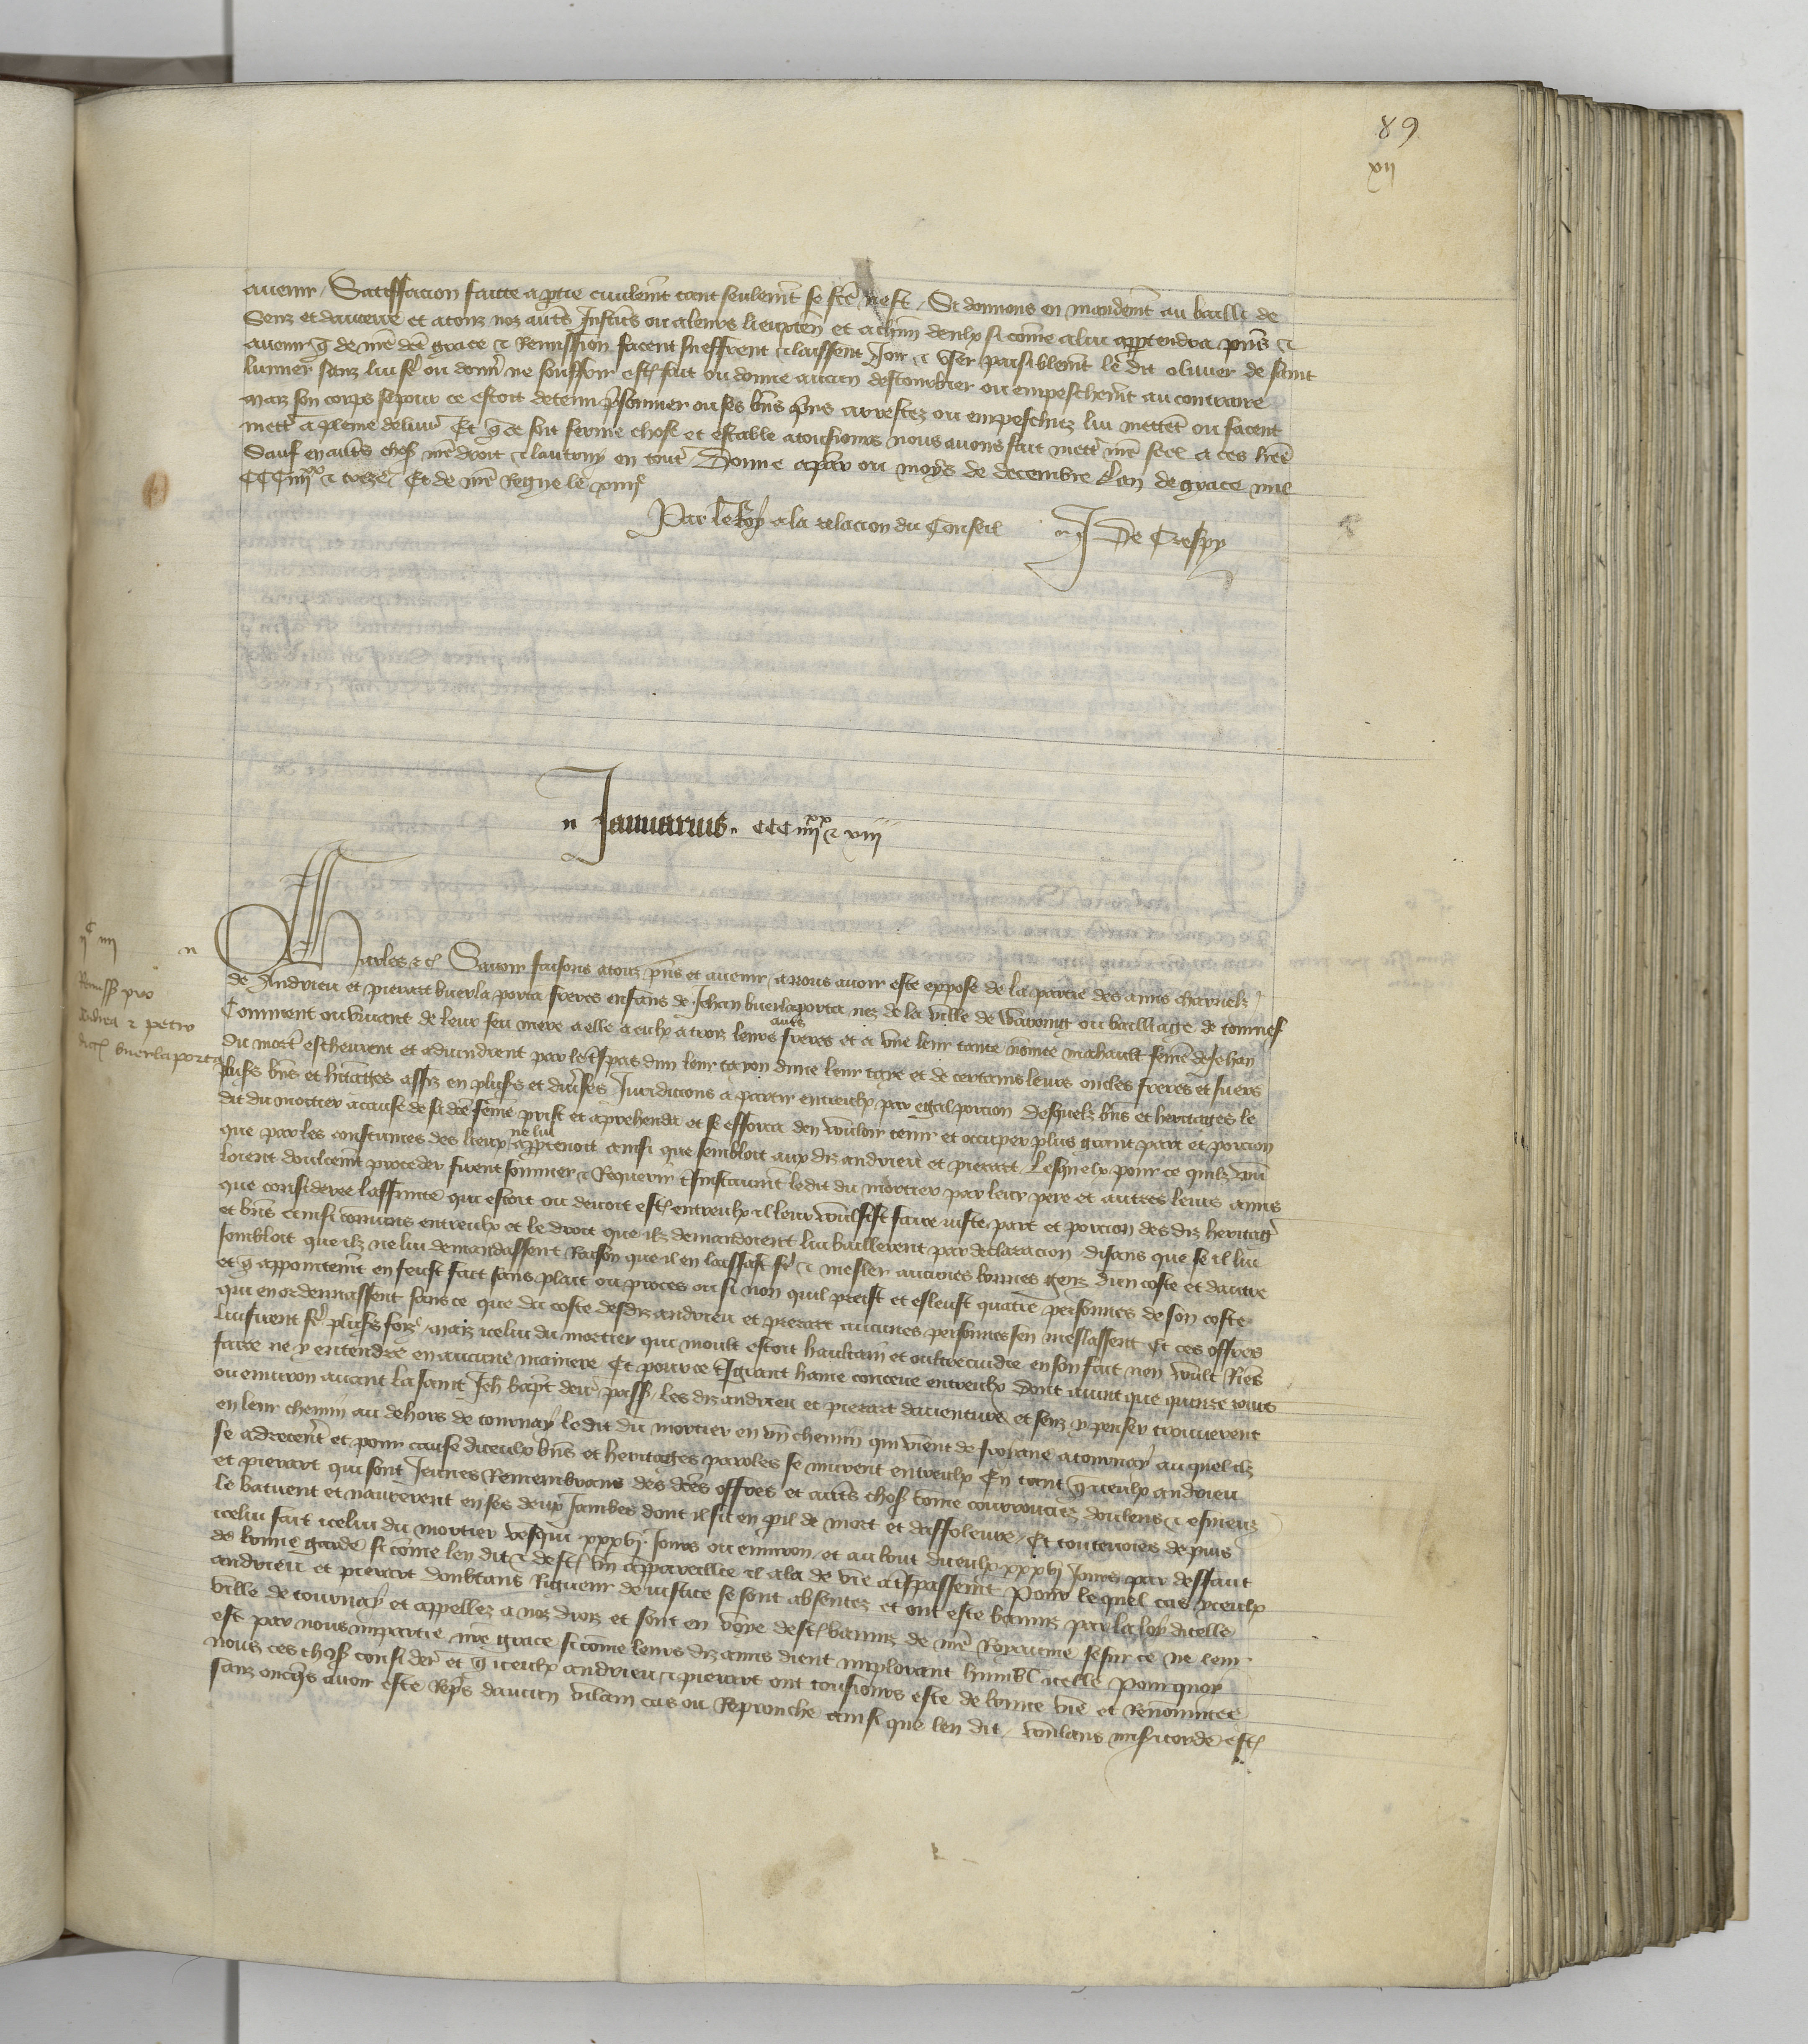 89
xij
avenir. Satisfacion faicte a partie civilemt tant seulemt se fcte nest. Si donnons en mandemt au bailli de
Senz et daucerre et a touz noz autres justic ou a leurs lieuxten et a chun deulx si come a lui appartendra pns et
avenir que de nre dce grace et Remission facent sueffrent et laissent joir et user paisiblemt le dit olivier de saint
lumier sanz lui fe ou donner ne souffrir estre fait ou donne aucun destourbier ou empeschemt au contraire
Maiz son corps se pour ce estoit detenu prisonnier ou ses bns prins arrestez ou empeschiez lui mettent ou facent
mettre a pleine delivr Et que ce soit ferme chose et estable a tousjours nous avons fait mettre nre seel a ces lres
Sauf en autres choses nre droit et lautruy en toutes Donne a par ou moys de decembre lan de grace mil
CCC iiijxx et treze Et de nre Regne le xiiije
Par le Roy a la relacion du Conseil J De Crespy
Januarius. CCC iiijxx et xiij
ijC iiij
Remiss pro
Andrea et petro
dictis buerlaporta
Charles etc Savoir faisons a touz pns et avenir, a nous avoir este expose de la partie des amis charnelz
de Andrieu et pierart buerla porta freres enfans de Jehan buerlaporta nez de la ville de Waroing ou bailliage de tournes
Comment ou vivant de leur feu mere a elle a eulx a troiz leurs autres freres et a une leur tante nomee mahault feme de Jehan
du mortier escheurent et advindrent par le trespas dun leur tayon dune leur taye et de certains leurs oncles freres et suers
plusrs bns et hitages assiz en plusrs et diverses Juridicions a partir entreulx par egal porcion Desquelz bns et heritages le
dit du mortier a cause de sa dce feme prist et aprehenda et se efforca den vouloir tenir et occuper plus grant part et porcion
que par les coustumes des lieux ne lui appartenoit ainsi que sembloit aux diz andrieu et pierart Lesquelx pour ce quilz vou
loient doulcemt proceder firent sommer et Requerir tres instaumt ledit du mortier par leur pere et autres leurs amis
que consideree laffinite qui estoit ou devoit estre entreulx il leur voulsist faire juste part et porcion des diz heritag
et bns ainsi comuns entreulx et le droit que ilz demandoient lui baillerent par declaracion disans que se il lui
sembloit que ilz ne lui demandassent Raison que il en laissast fe et mesler aucunes bonnes genz dun coste et dautre
et que appointemt en feust fait sans plait ou proces ou si non quil preist et esleust quatre personnes de son coste
qui en ordennassent sans ce que du coste desdiz andrieu et pierart aucunes personnes sen meslassent Et ces offres
lui firent fe plusrs foiz maiz icelui du mortier qui moult estoit haultain et oultrecuidie en son fait nen voult Riens
faire ne y entendre en aucune maniere Et pour ce tres grant haine conceue entreulx Dont avint que quinze jours
ou environ avant la saint Jeh bapt derr pass les diz andrieu et pierart daventure et senz y penser trouverent
en leur chemin au dehors de tournay ledit du mortier en un chemin qui vient de froyane a tournay auquel ilz
se adrecerent et pour cause diceulx bns et heritages paroles se murent entreulx En tant que iceulx andrieu
et pierart qui sont Jeunes Remembrans des dces offres et autres choses come courrouciez doulens et esmeuz
le batirent et navrerent en ses deux Jambes dont il fu en peril de mort et daffoleure Et toutevoies depuis
icelui fait icelui du mortier vesqui xxxvj Jours ou environ et au bout diceulx xxxvj Jours par deffaut
de bonne garde si come len dit et destre mal appareillie il ala de vie a trespassemt Pour lequel cas yceulx
andrieu et pierart doubtans Rigueur de justice se sont absentez et ont este banniz par la loy dicelle
ville de tournay et appellez a noz droiz et sont en voye destre banniz de nre Royaume se sur ce ne leur
est par nous impartie nre grace si come leurs diz amis dient implorant humbl icelle Pourquoy
nous ces choses consider et que iceulx andrieu et pierart ont tousjours este de bonne vie et Renommee
sanz oncques avoir este Repris daucun vilain cas ou Reprouche ainsi que len dit, voulans misericorde estre